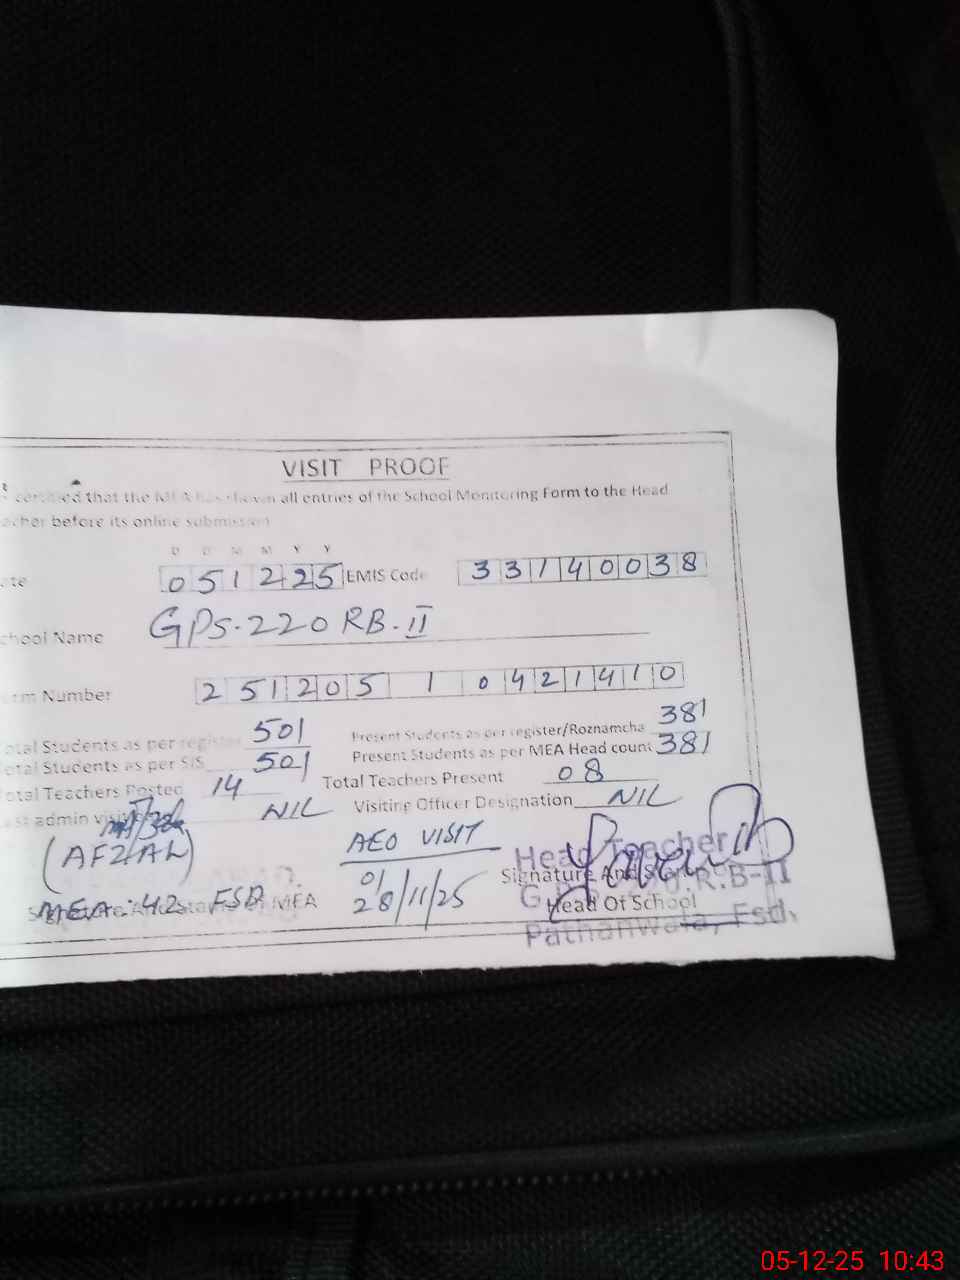 VISIT PROOF
certified that the MEA has shown all entries of the School Monitoring Form to the Head
acher before its online submission
D D M M Y Y
ate 051225 EMIS Code 33140038
chool Name GPS.220 RB.II
rm Number 251205 1 0421410
otal Students as per register 501 Present Students as per register/Roznamcha 381
otal Students as per SIS 501 Present Students as per MEA Head count 381
otal Teachers Posted 14 Total Teachers Present 08
ast admin visit NIL Visiting Officer Designation NIL
(AFZAL) AEO VISIT Head Teacher
01 Signature And
MEA: 42 FSD MEA 28/11/25 R.B-II
Head Of School
Pathanwala, Fsd.
05-12-25 10:43